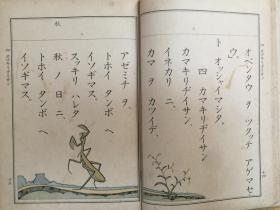 オベンタウ ヲ ツクッテ アゲマセ
ウ。」
ト オッシャイマシタ。
四 カマキリヂイサン
カマキリヂイサン
イネカリ ニ、
カマ ヲ カツイデ、
アゼミチ ヲ、
イソギマス、
トホイ タンボ ヘ
スッキリ ハレタ
秋 ノ 日 ニ、
トホイ タンボ ヘ
イソギマス。
秋